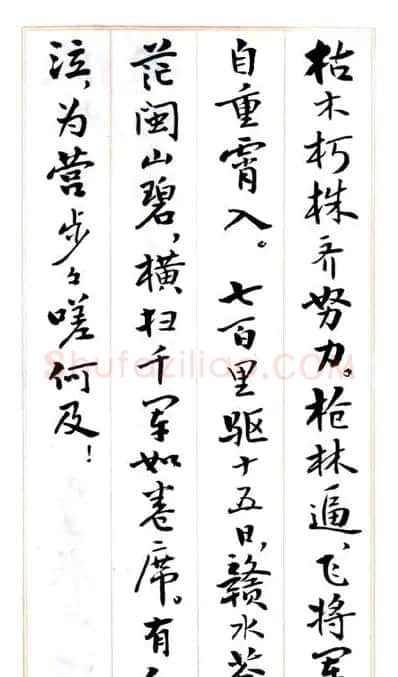 枯木朽株齐努力。枪林逼、飞将军
自重霄入。七百里驱十五日,赣水苍
茫闽山碧,横扫千军如卷席。有人
泣,为营步々嗟何及!
Shufaziliao.COM